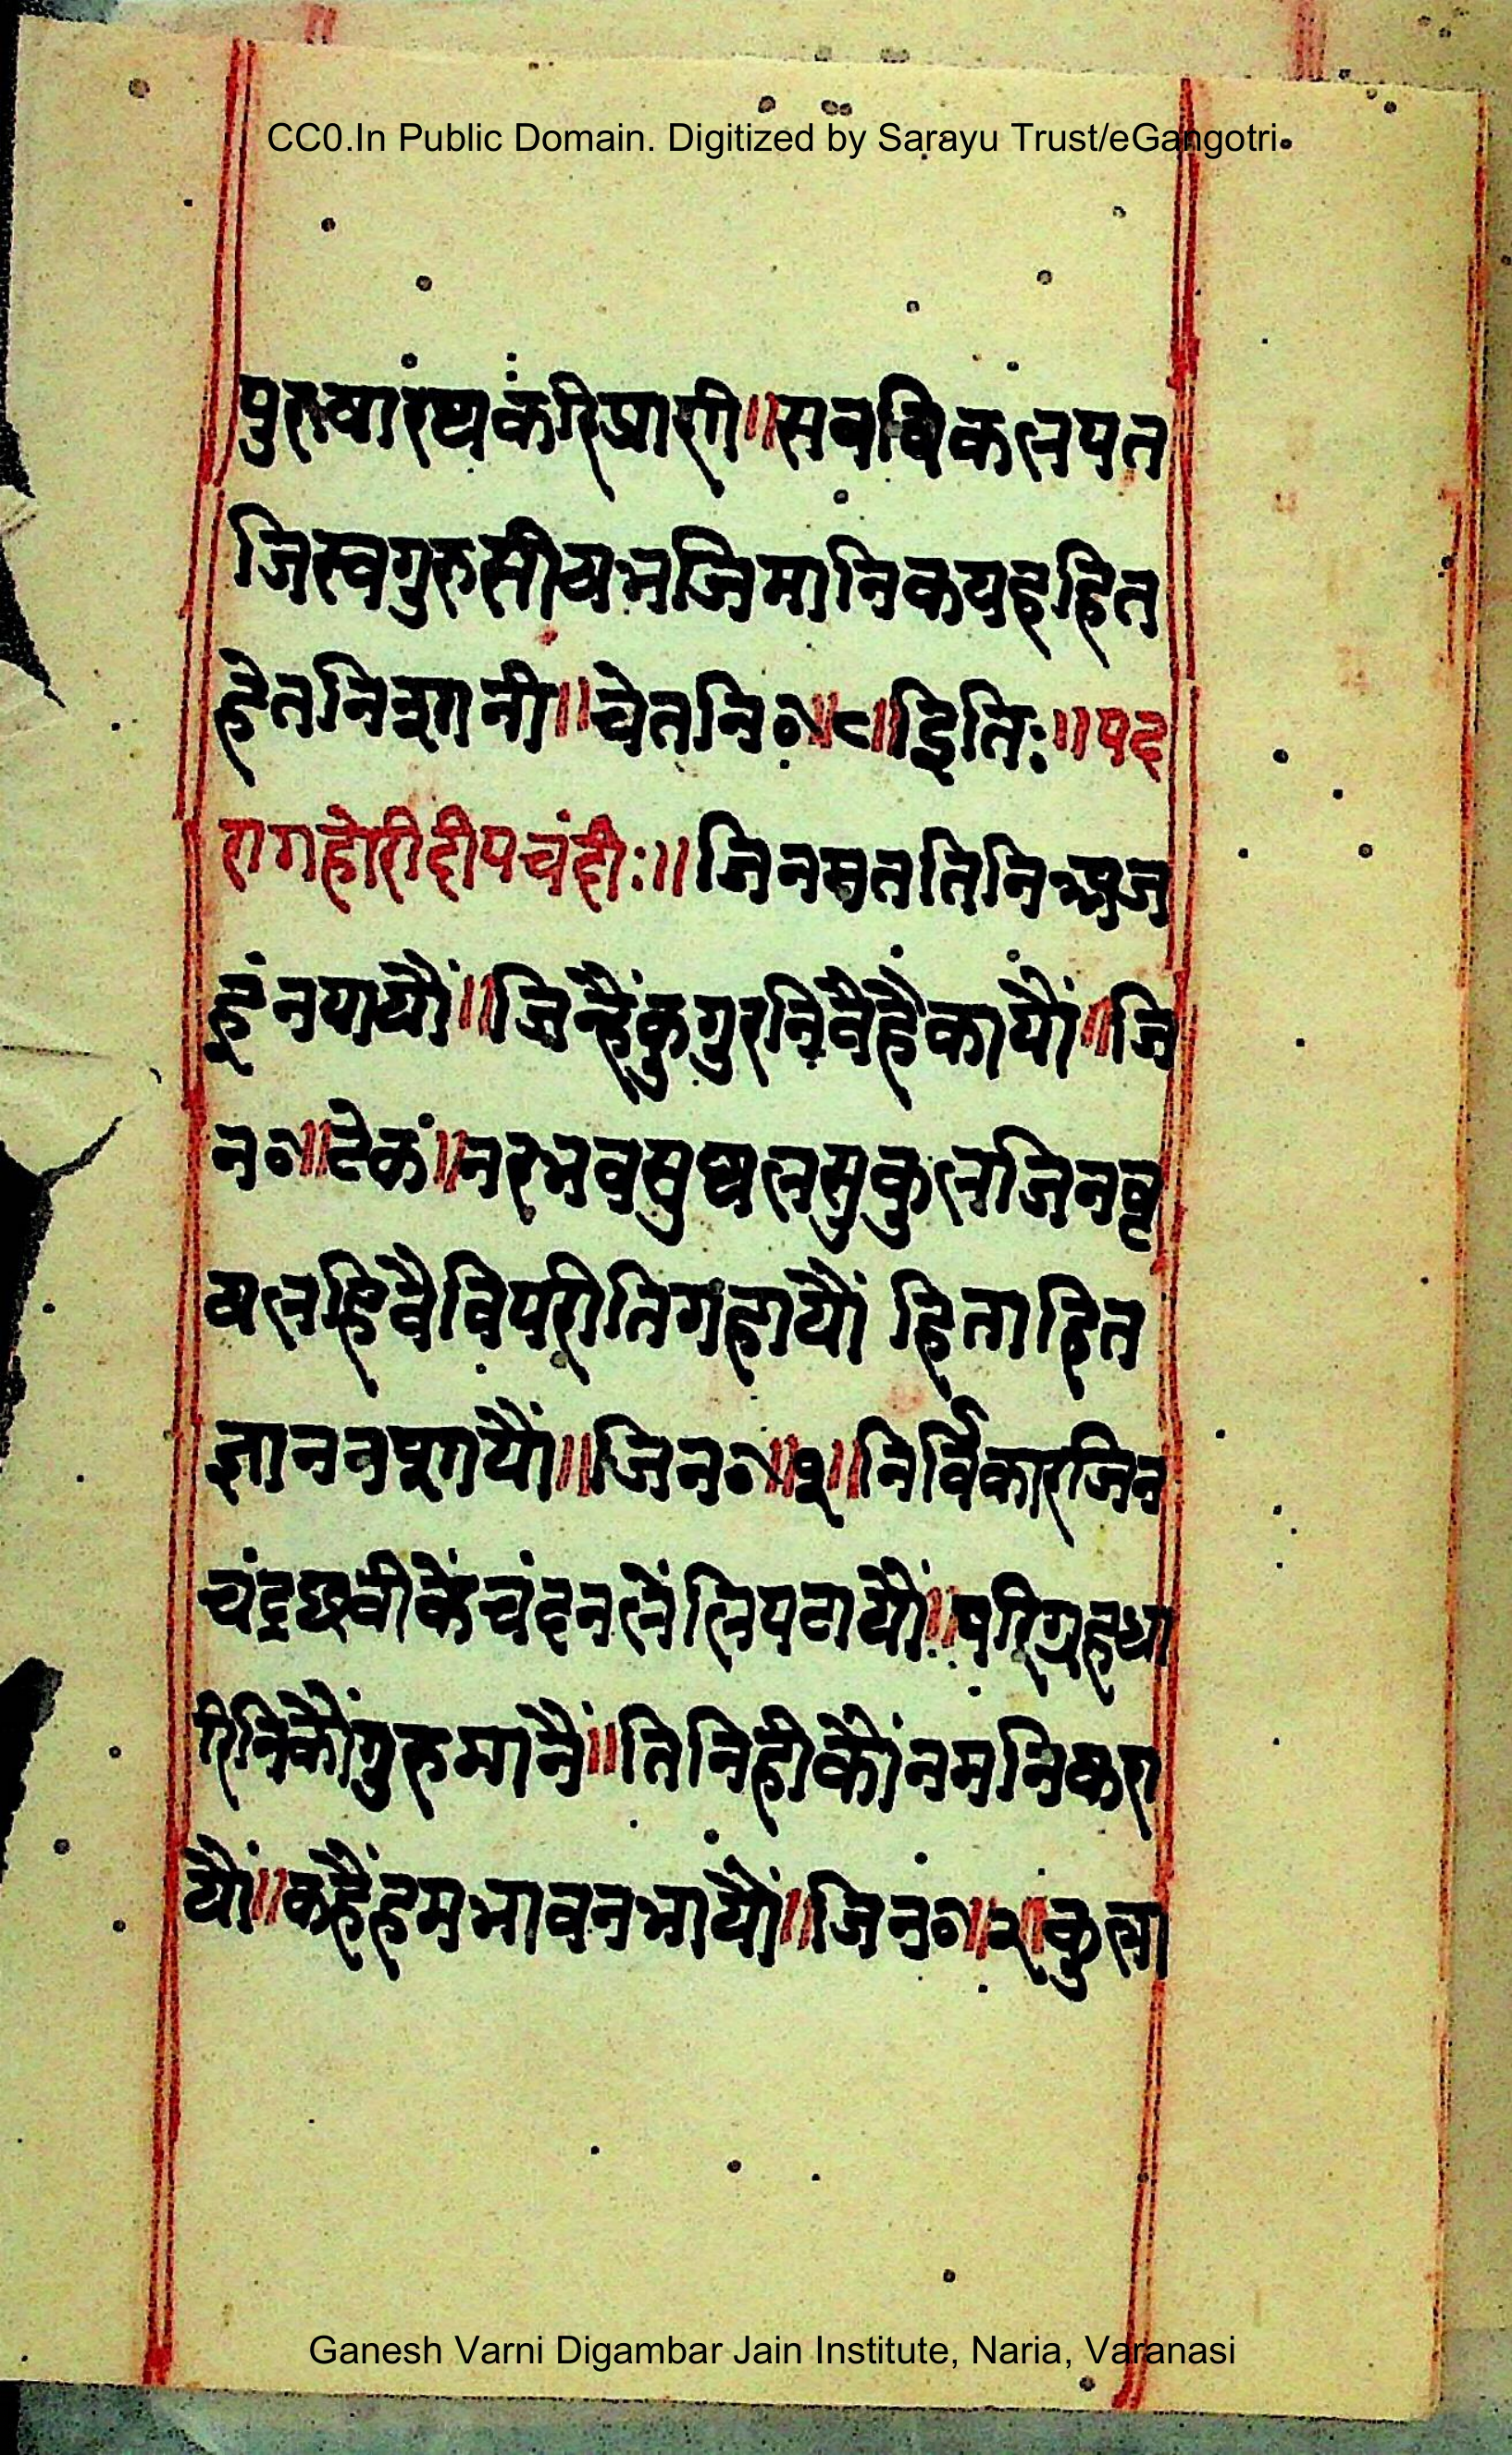 CC0.In Public Domain. Digitized by Sarayu Trust/eGangotri
पुरुषारष्य करि प्राणी॥सबविकलपत
जिस्वगुरुसीषभजिमानिकयहहित
हेतनिसानी॥चेतनि०॥८॥इतिः॥पद
रागहोरीदीपचंदीः॥जिनमततिनिआज
हूंनपायौं॥जिन्हैंकुगुरनिवैहैकायौं॥जि
न०॥टेक॥नरभवसुथलसुकुलजिनवृ
षलहिवैविपरीतिगहायौं हिताहित
ज्ञाननपायौं॥जिन०॥१॥निर्विकारजिन
चंद्रछवीकेंचंदनलेंलिपटायौं॥परिग्रहधा
रिनिकौंगुरुमानैं॥तिनिहीकौंनमनिकरा
यौं॥कहैंहमभावनभायौं॥जिन०॥२॥कुला
Ganesh Varni Digambar Jain Institute, Naria, Varanasi